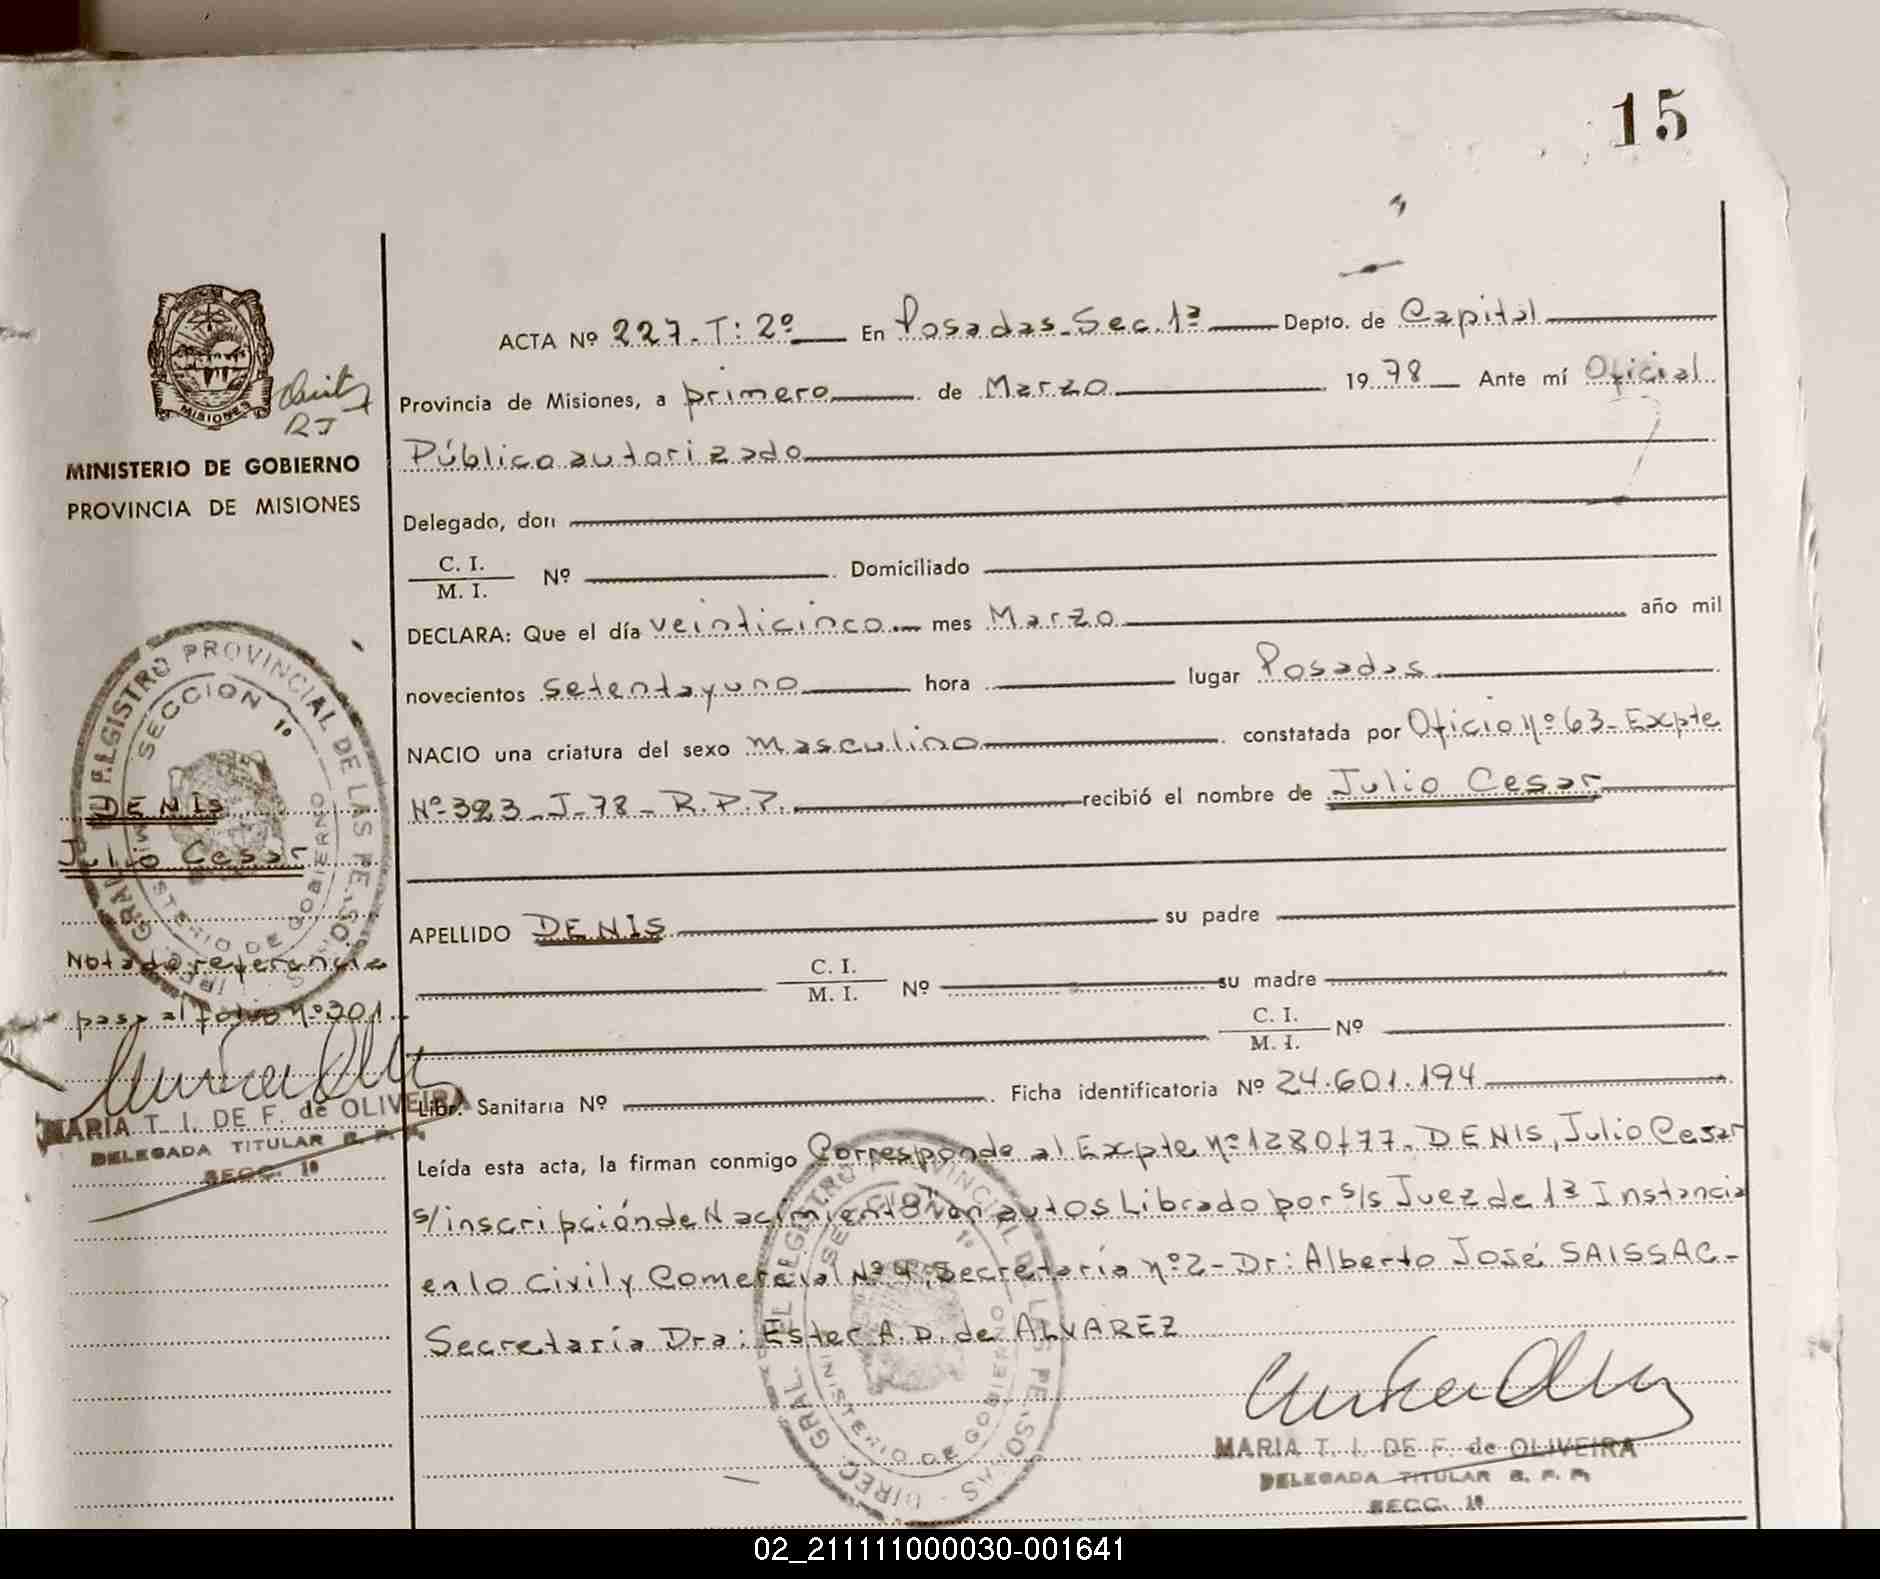 15
ACTA Nº 227. T: 2º En Posadas Sec. 1ª Depto. de Capital
Provincia de Misiones, a primero de Marzo 1978 Ante mí Oficial
Público autorizado
MISIONES
MINISTERIO DE GOBIERNO
PROVINCIA DE MISIONES
Delegado, don
C. I.
M. I. Nº Domiciliado
DECLARA: Que el día veinticinco mes Marzo año mil
novecientos setenta y uno hora lugar Posadas
NACIO una criatura del sexo masculino constatada por Oficio Nº 63 - Expte
Nº 323 - J - 78 - R.P.P. recibió el nombre de Julio Cesar
DENIS
Julio Cesar
APELLIDO DENIS su padre
C. I.
M. I. Nº su madre
C. I.
M. I. Nº
Nota de referencia
pasa al folio Nº 301.
Libr. Sanitaria Nº Ficha identificatoria Nº 24.601.194
MARIA T. I. DE F. de OLIVEIRA
DELEGADA TITULAR R. P. P.
SECC. 1ª
Leída esta acta, la firman conmigo Corresponde al Expte Nº 1280/77. DENIS, Julio Cesar
s/inscripción de Nacimiento" en autos Librado por s/s Juez de 1ª Instancia
en lo Civil y Comercial Nº 4, Secretaría Nº 2 - Dr: Alberto José SAISSAC -
Secretaría Dra: Ester A. D. de ALVAREZ
MARIA T. I. DE F. de OLIVEIRA
DELEGADA TITULAR R. P. P.
SECC. 1ª
02_211111000030-001641